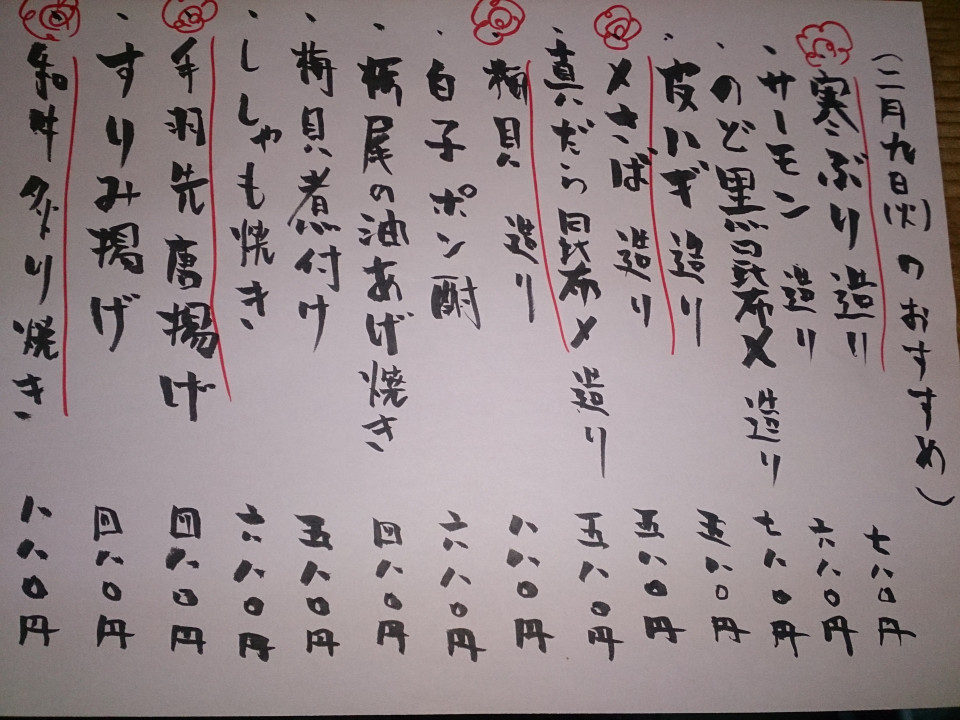 （二月九日(火)のおすすめ）
・寒ぶり 造り 七八〇円
・サーモン 造り 六八〇円
・のど黒昆布〆 造り 七八〇円
・皮ハギ 造り 五八〇円
・〆さば 造り 五八〇円
・真だら昆布〆 造り 五八〇円
・梅貝 造り 八八〇円
・白子ポン酢 六八〇円
・栃尾の油あげ焼き 四八〇円
・梅貝煮付け 五八〇円
・ししゃも焼き 六八〇円
・手羽先唐揚げ 四八〇円
・すりみ揚げ 四八〇円
・和牛 焼き 八八〇円